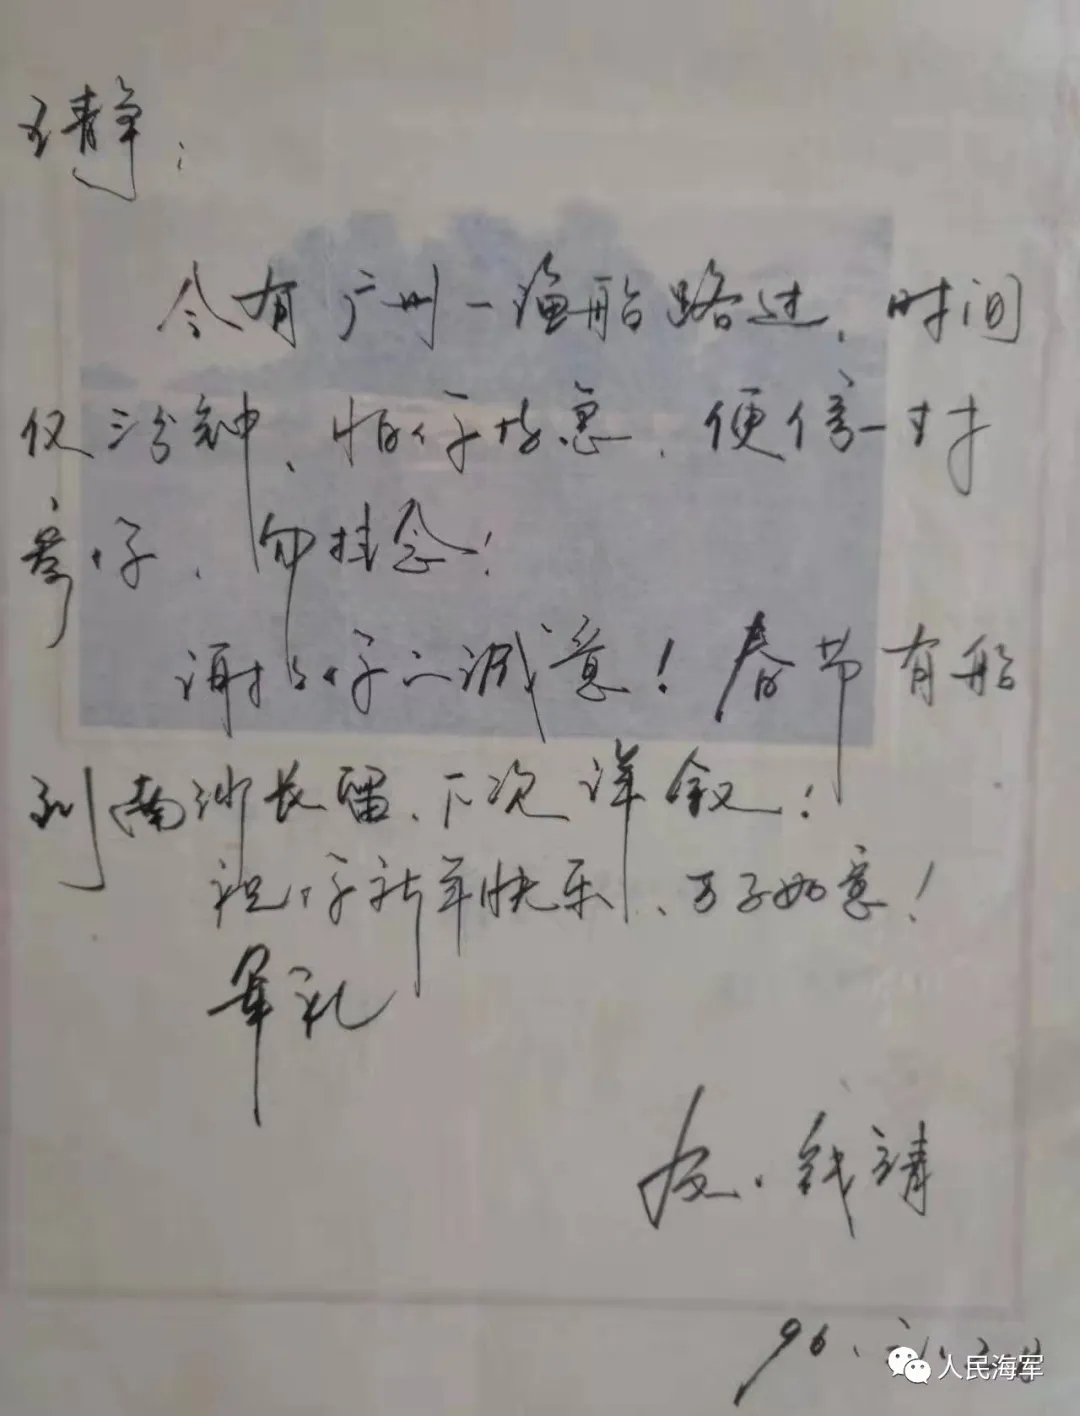 静:
今有广州一渔船路过,时间
仅三分钟、怕你焦急,便信一封
寄你、勿挂念!
谢谢你之诚意!春节有船
到南沙长留、下次详叙!
祝你新年快乐、万事如意!
军礼
友、钱靖
96、
人民海军